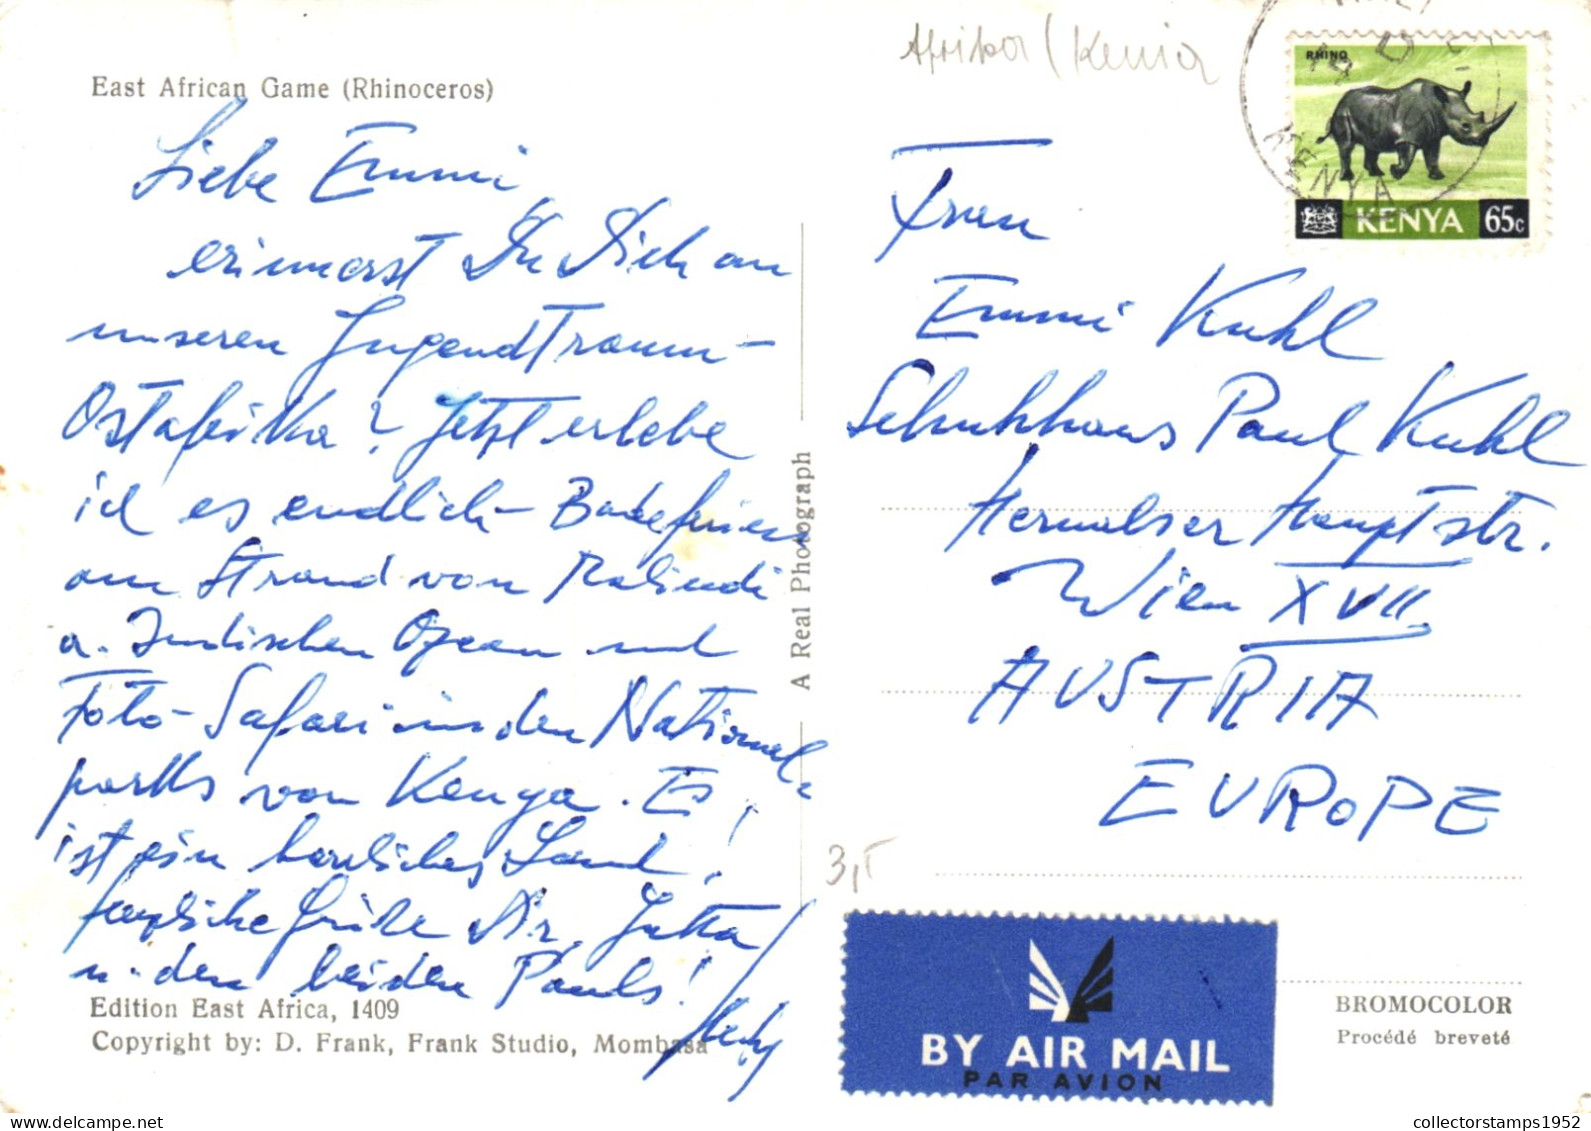 East African Game (Rhinoceros)
Liebe Emmi
erinnerst Du Dich an
unseren Jugendtraum -
Ostafrika? Jetzt erlebe
ich es endlich - Badeferien
am Strand von Malindi
a. Indischen Ozean und
Foto-Safari in den National-
parks von Kenya. Es
ist ein herrliches Land!
Grüße Dir, Jutta
u. den beiden Pauls!
Edition East Africa, 1409
Copyright by: D. Frank, Frank Studio, Mombasa
A Real Photograph
Afrika / Kenia
RHINO
KENYA 65c
KENYA
Frau
Emmi Kuhl
Schuhhaus Paul Kuhl
Hernalser Hauptstr.
Wien XVII.
AUSTRIA
EUROPE
BY AIR MAIL
PAR AVION
BROMOCOLOR
Procédé breveté
collectorstamps1952